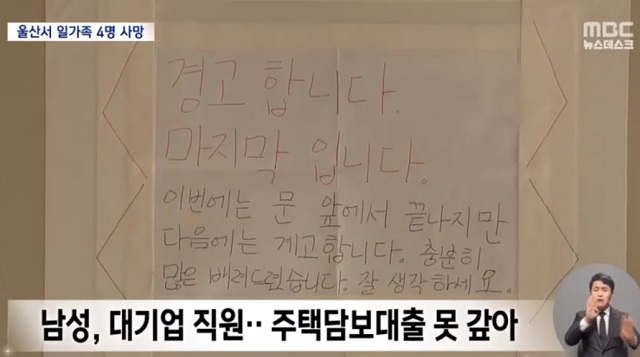 울산서 일가족 4명 사망
MBC
뉴스데스크
경고 합니다.
마지막 입니다.
이번에는 문 앞에서 끝나지만
다음에는 계고합니다. 충분히
많은 배려드렸습니다. 잘 생각하세요.
남성, 대기업 직원‥ 주택담보대출 못 갚아